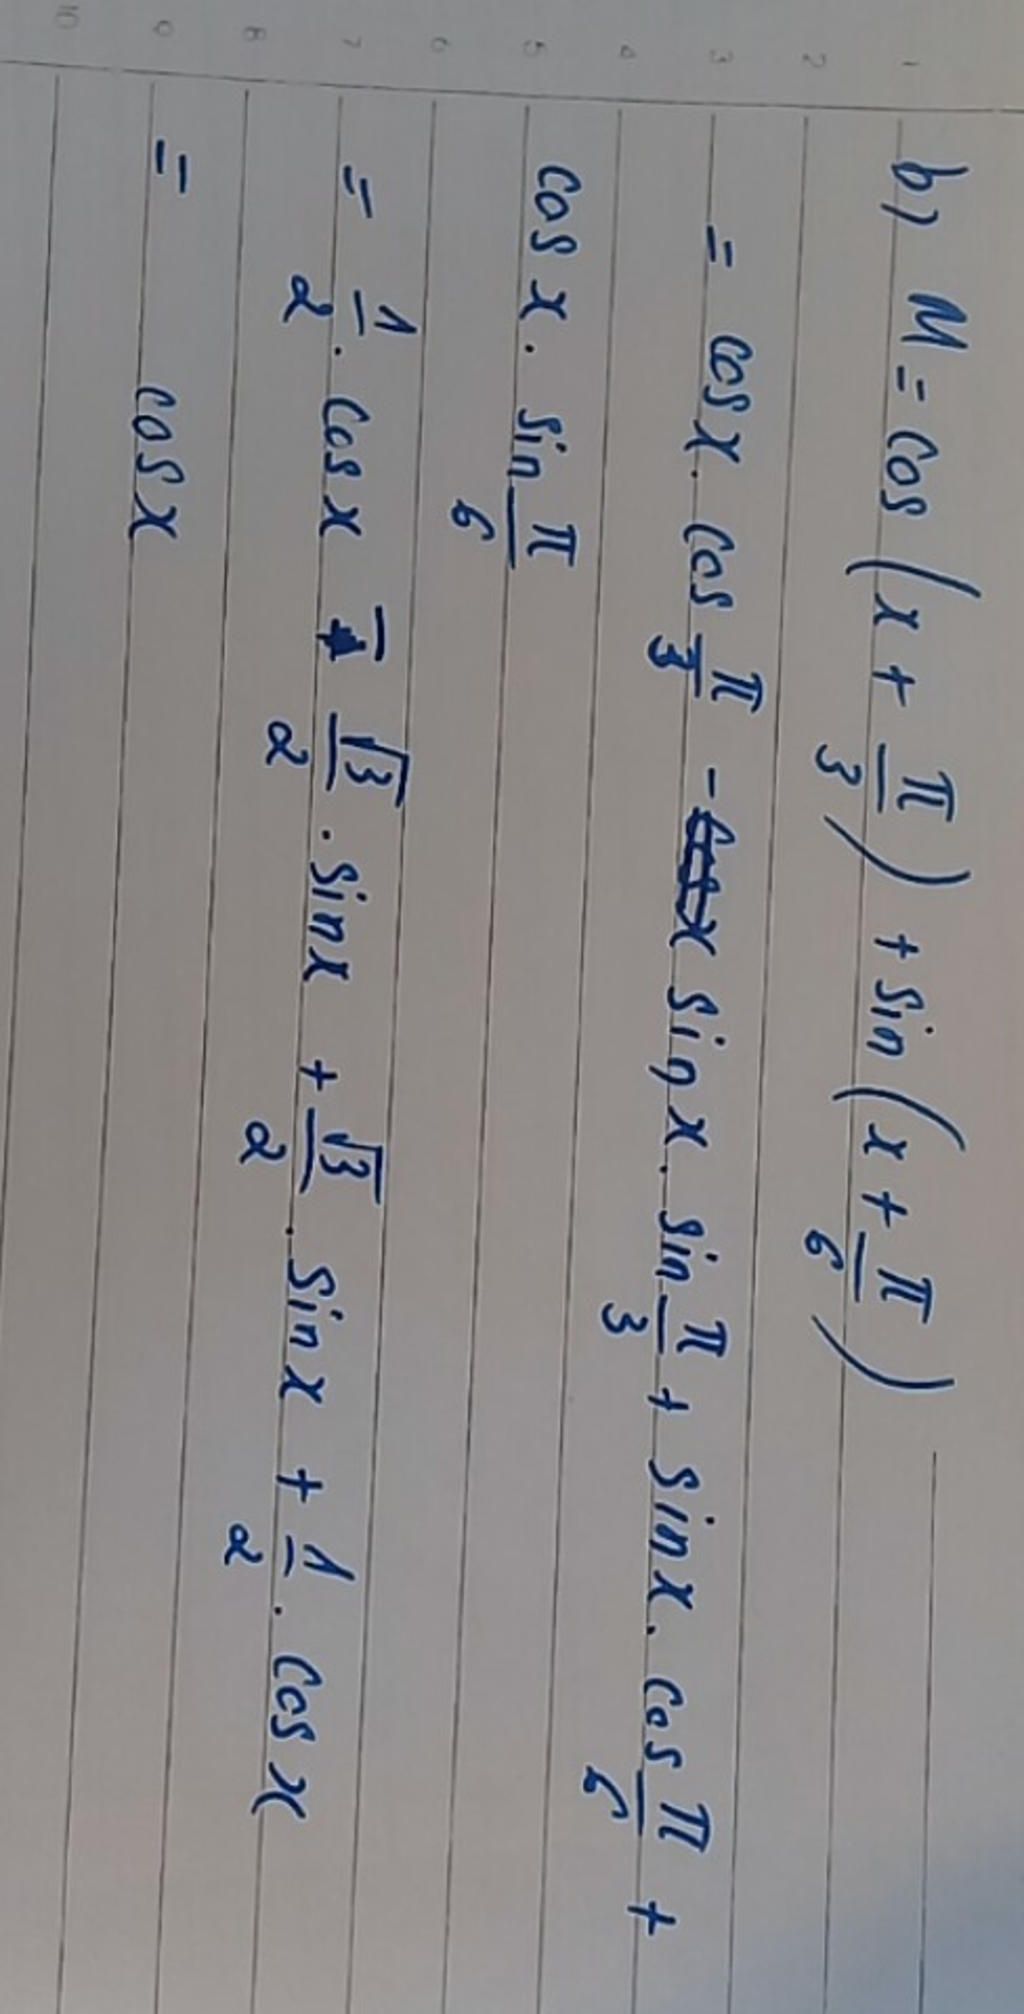 b) M = cos (x + π/3) + sin (x + π/6)
= cos x . cos π/3 - sin x . sin π/3 + sin x . cos π/6 +
cos x . sin π/6
= 1/2 . cos x - √3/2 . sin x + √3/2 . sin x + 1/2 . cos x
= cos x
1 2 3 4 5 6 7 8 9 10